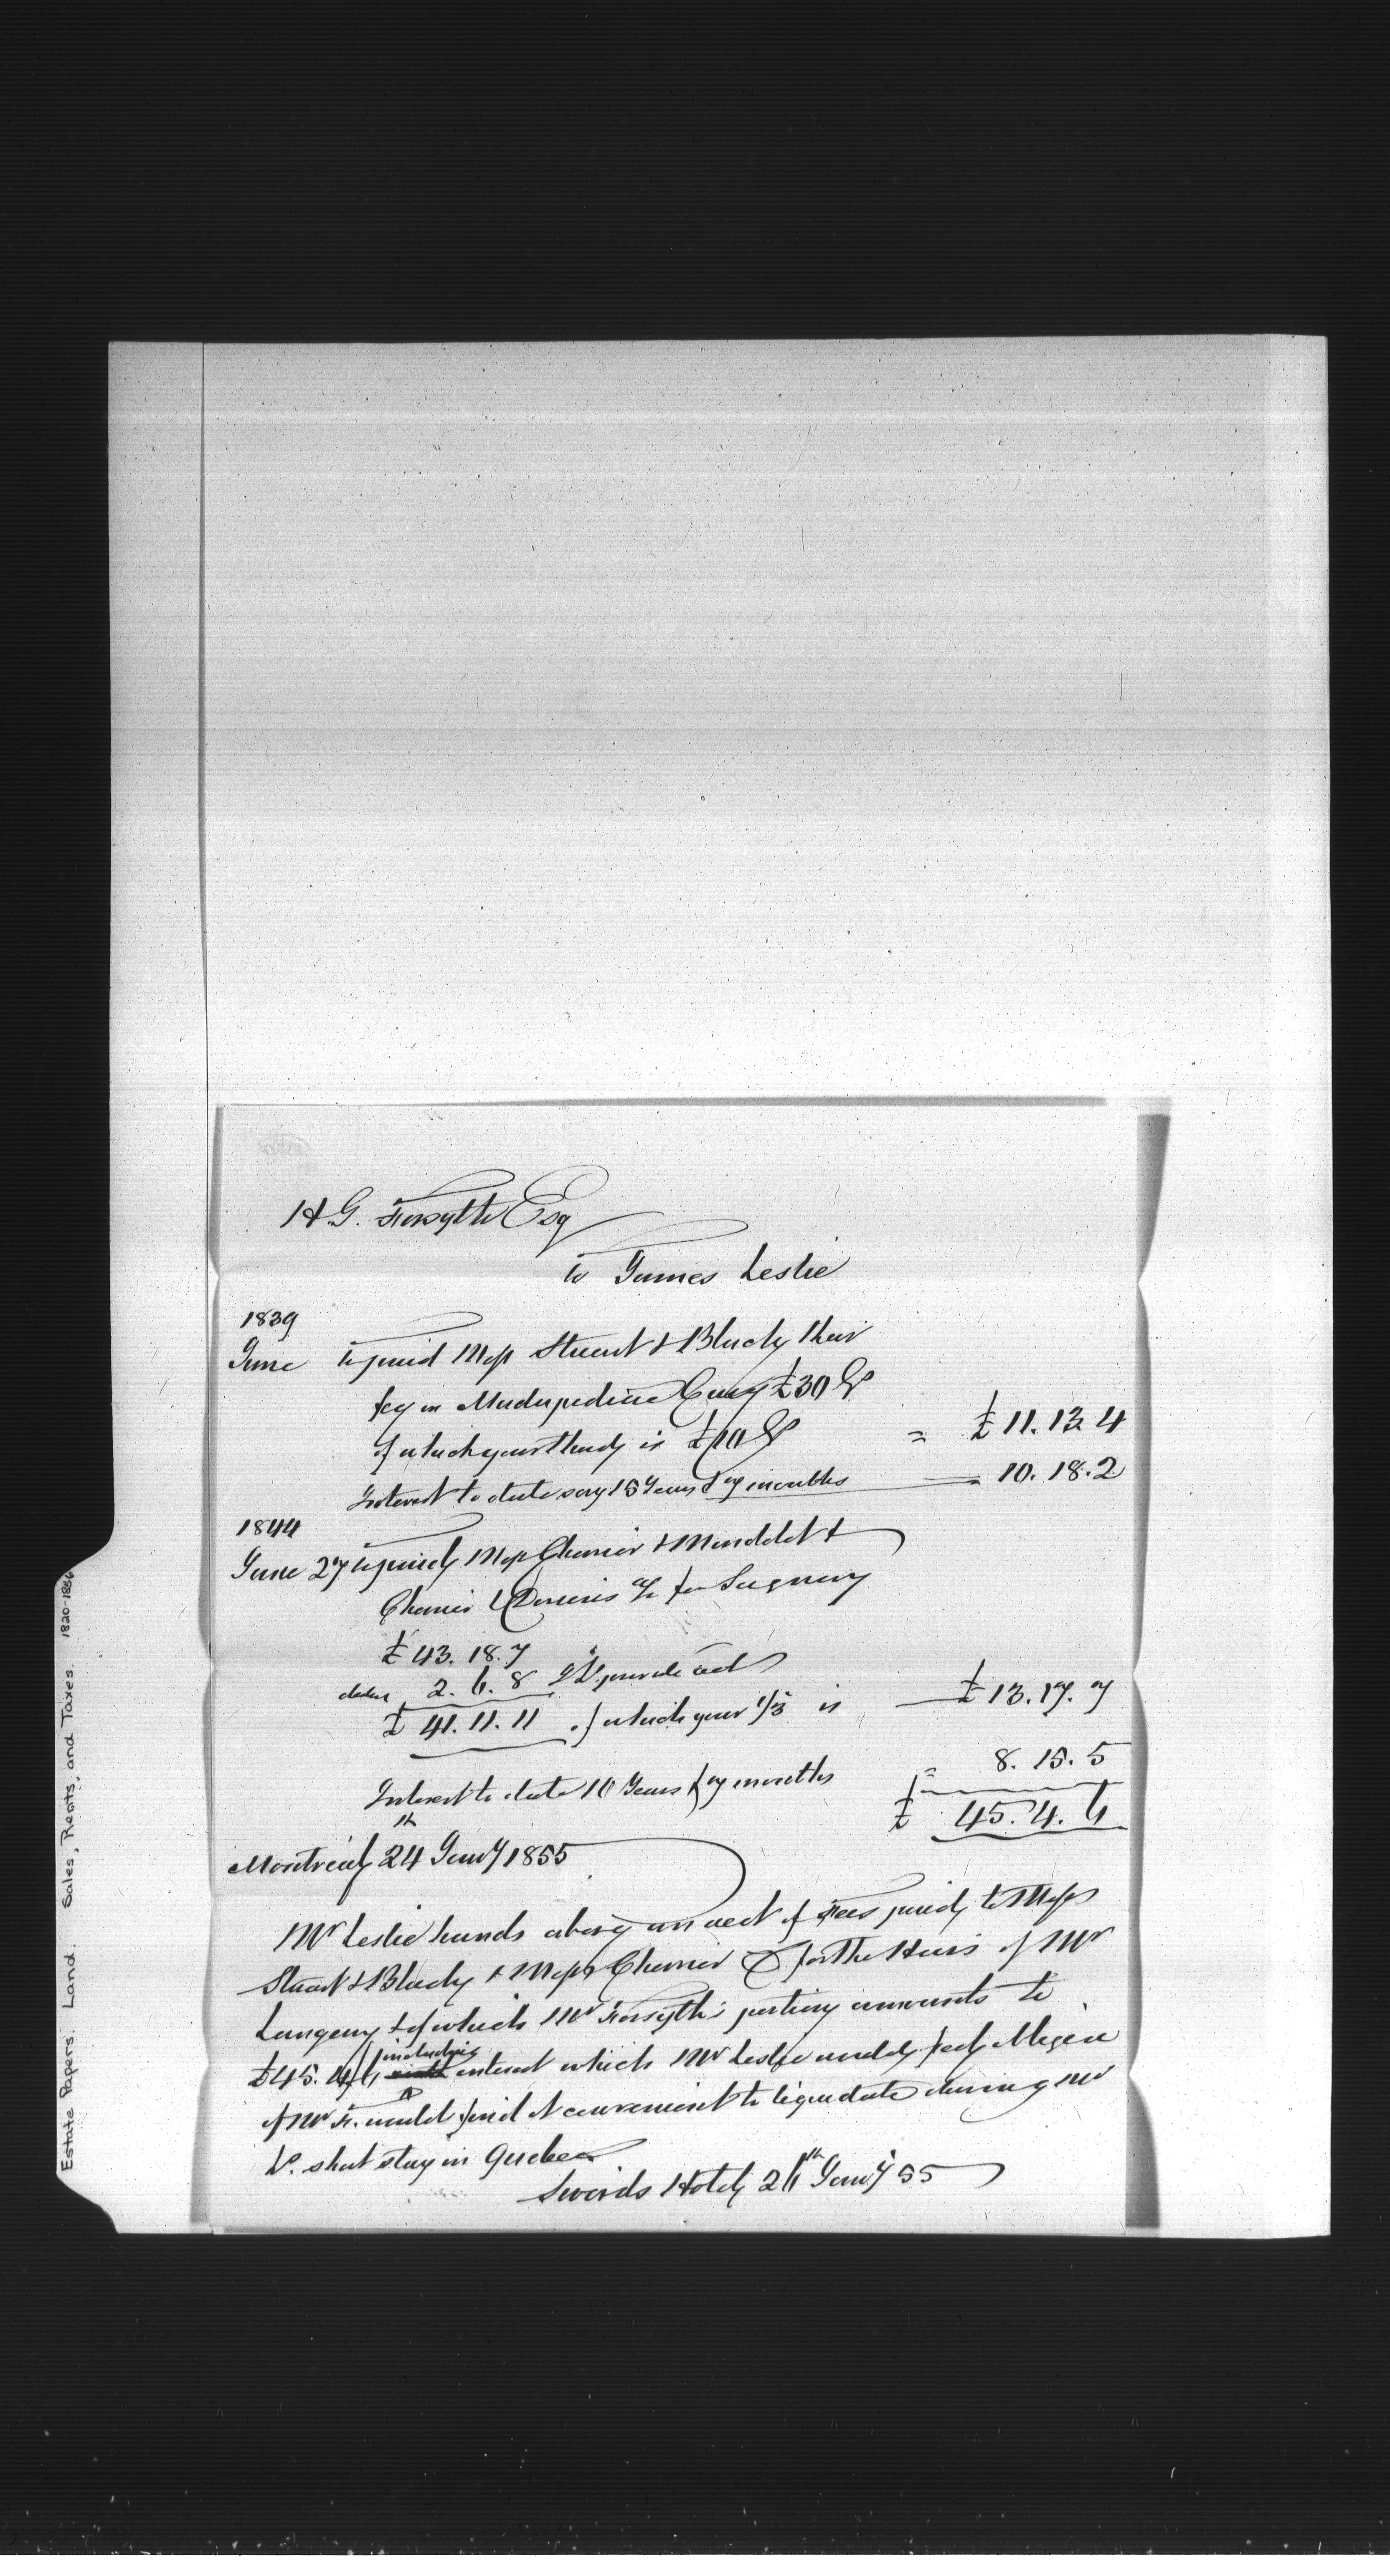 H.G. Forsyth Esq
To James Leslie
1839
June To paid Mess Stuart & Black their
fee in Madapedica £30
of which your third is £10 = £11.13.4
Interest to date say 15 Years & 7 months = 10.18.2
1844
June 27 To paid Mess Cherrier & Mondelet &
Cherrier & a/c for Seigneury
£43.18.7
deduct 2.6.8 private acct
£41.11.11 of which your 1/3 is £13.17.7
Interest to date 10 Years & 7 months = 8.15.5
£ 45.4.6
Montreal 24th Jany 1855
Mr Leslie hands above an acct of Fees paid to Mess
Stuart & Black & Mess Cherrier & for the Heirs of Mr
& of which Mr Forsyth's portion amounts to
£45.4/6 including interest which Mr Leslie would feel
if Mr F. would find it convenient to liquidate during Mr
L's. short stay in Quebec
Swords Hotel 26th Jany 55
Estate Papers. Land. Sales, Rents, and Taxes. 1820-1856